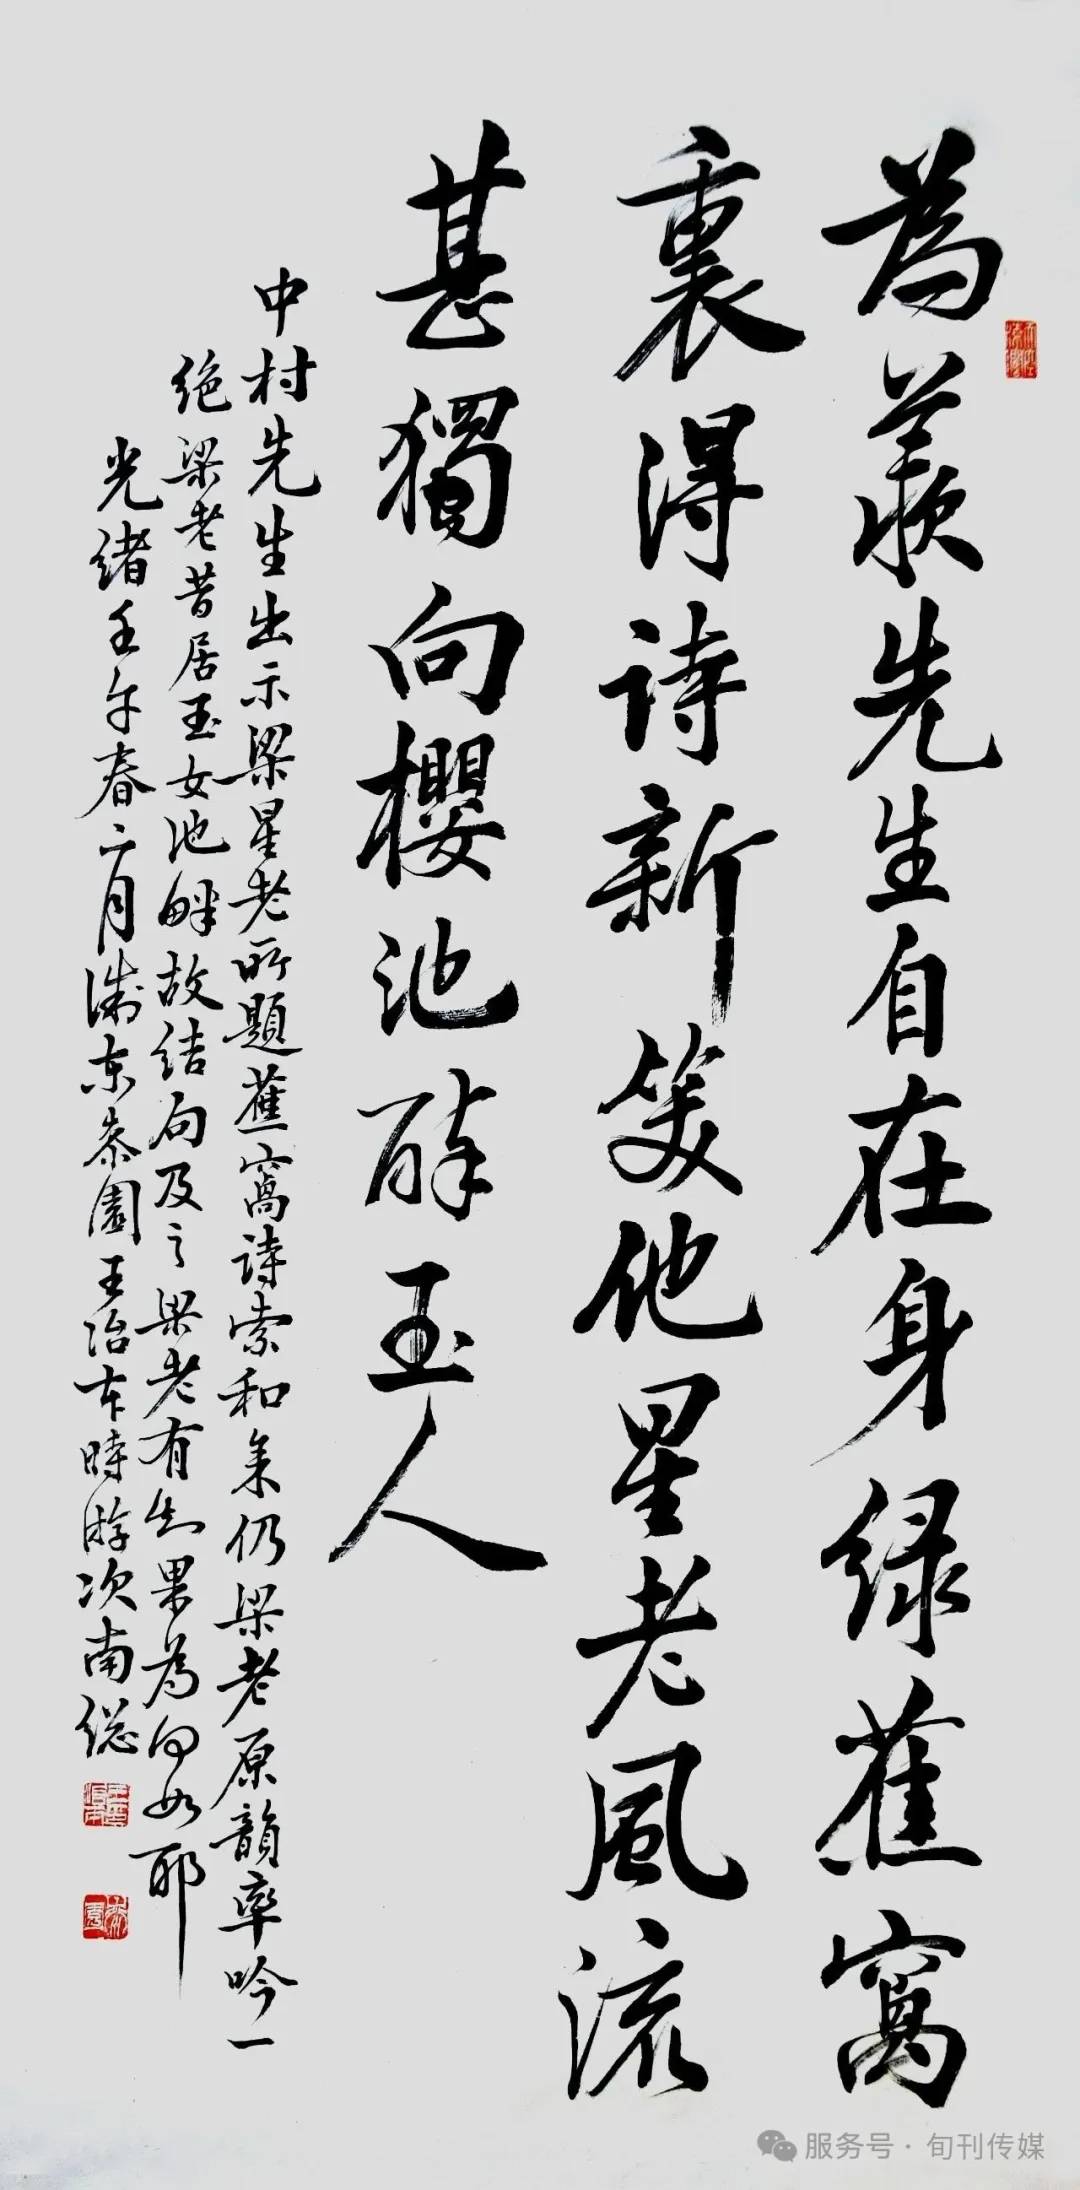 為羨先生自在身綠蕉窩
裏得詩新笑他星老風流
甚獨向櫻池醉玉人
中村先生出示梁星老所題蕉窩詩索和仍梁老原韻率吟一
絕梁老昔居玉女池畔故結句及之梁老有知果為何如耶
光緒壬午春二月浙東桼園王治本時游次南總
服务号 · 旬刊传媒